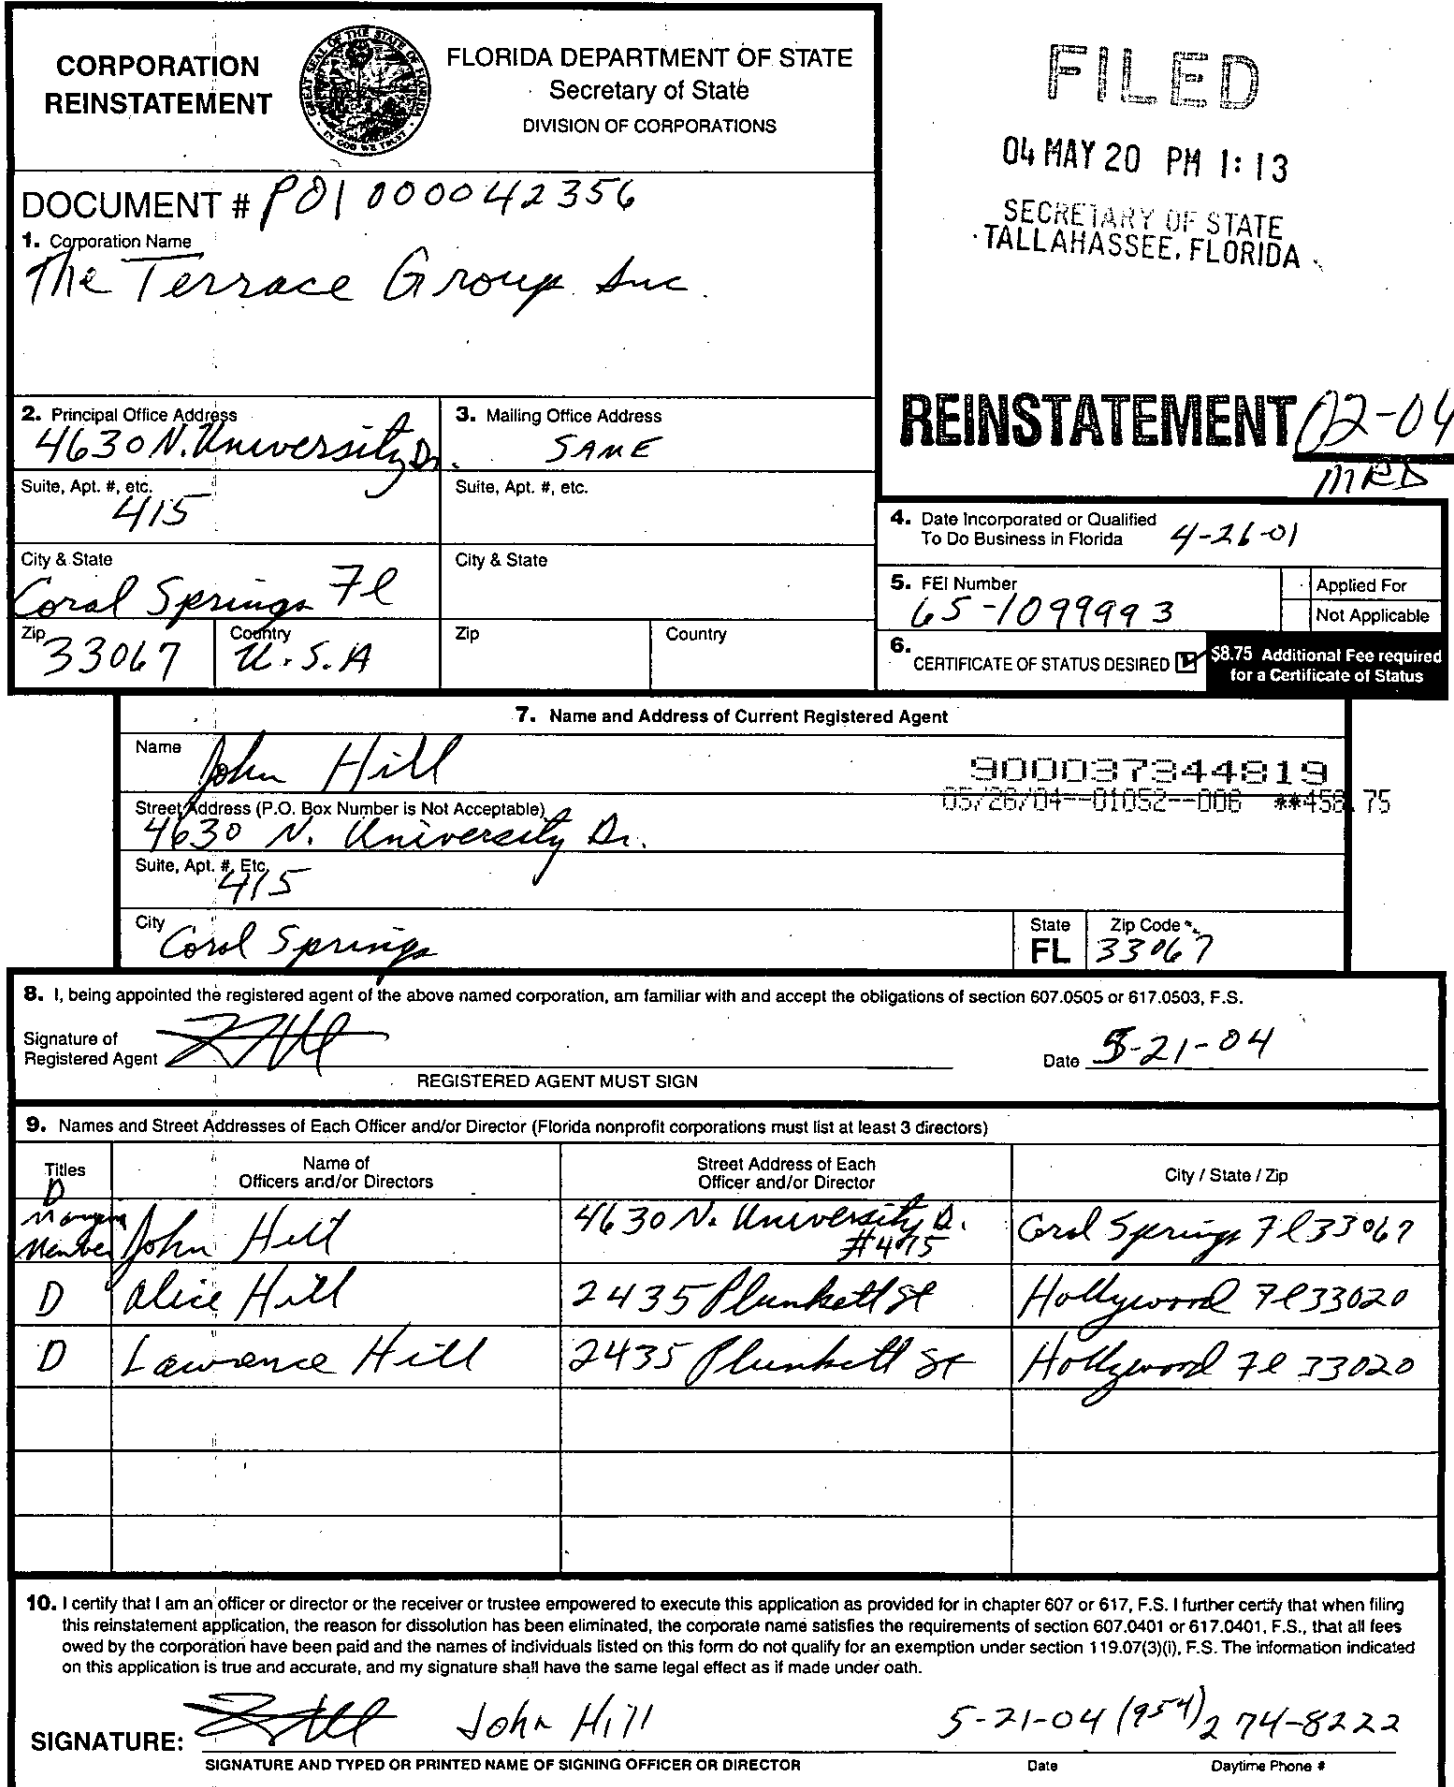 CORPORATION
REINSTATEMENT
FLORIDA DEPARTMENT OF STATE
Secretary of State
DIVISION OF CORPORATIONS
FILED
04 MAY 20 PM 1:13
SECRETARY OF STATE
TALLAHASSEE, FLORIDA
DOCUMENT # P01000042356
1. Corporation Name
The Terrace Group Inc.
REINSTATEMENT 02-04
MRD
2. Principal Office Address
4630 N. University Dr.
3. Mailing Office Address
SAME
Suite, Apt. #, etc.
415
Suite, Apt. #, etc.
City & State
Coral Springs Fl
City & State
Zip
33067
Country
U.S.A
Zip
Country
4. Date Incorporated or Qualified
To Do Business in Florida
4-26-01
5. FEI Number
65-1099993
Applied For
Not Applicable
6. CERTIFICATE OF STATUS DESIRED
$8.75 Additional Fee required
for a Certificate of Status
7. Name and Address of Current Registered Agent
Name
John Hill
900037344819
05/26/04--01052--006 **458.75
Street Address (P.O. Box Number is Not Acceptable)
4630 N. University Dr.
Suite, Apt. #, Etc.
415
City
Coral Springs
State
FL
Zip Code
33067
8. I, being appointed the registered agent of the above named corporation, am familiar with and accept the obligations of section 607.0505 or 617.0503, F.S.
Signature of
Registered Agent
Date 5-21-04
REGISTERED AGENT MUST SIGN
9. Names and Street Addresses of Each Officer and/or Director (Florida nonprofit corporations must list at least 3 directors)
Titles
Name of
Officers and/or Directors
Street Address of Each
Officer and/or Director
City / State / Zip
D
Member John Hill 4630 N. University D. #415 Coral Springs Fl 33067
D Alice Hill 2435 Plunkett St Hollywood Fl 33020
D Lawrence Hill 2435 Plunkett St Hollywood Fl 33020
10. I certify that I am an officer or director or the receiver or trustee empowered to execute this application as provided for in chapter 607 or 617, F.S. I further certify that when filing
this reinstatement application, the reason for dissolution has been eliminated, the corporate name satisfies the requirements of section 607.0401 or 617.0401, F.S., that all fees
owed by the corporation have been paid and the names of individuals listed on this form do not qualify for an exemption under section 119.07(3)(i), F.S. The information indicated
on this application is true and accurate, and my signature shall have the same legal effect as if made under oath.
SIGNATURE: John Hill 5-21-04 (954) 274-8222
SIGNATURE AND TYPED OR PRINTED NAME OF SIGNING OFFICER OR DIRECTOR
Date
Daytime Phone #